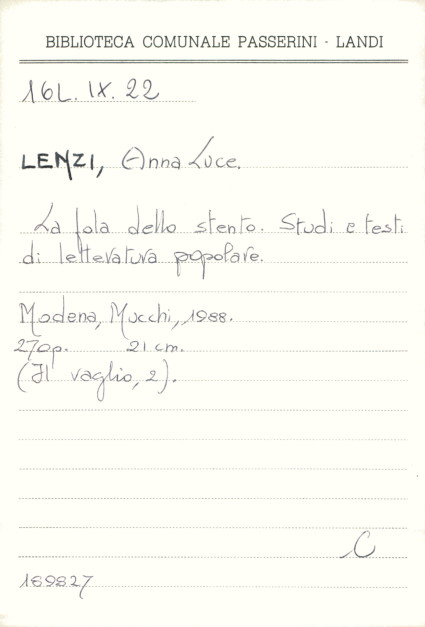 BIBLIOTECA COMUNALE PASSERINI - LANDI
16L. IX. 22
LENZI, Anna Luce.
La fola dello stento. Studi e testi
di letteratura popolare.
Modena, Mucchi, 1988.
270p. 21 cm.
(Il vaglio, 2).
C
169827